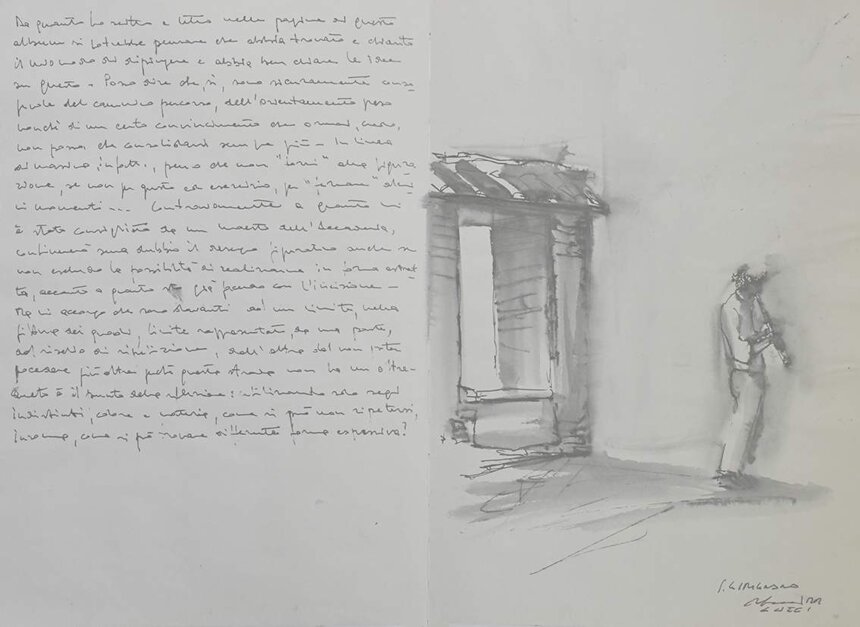 Da quanto ho scritto e letto nelle pagine di questo
album si potrebbe pensare che abbia trovato e chiarito
il mio modo di dipingere e abbia ben chiare le idee
su questo - Posso dire che, sì, sono sicuramente consa-
pevole del cammino percorso, dell'orientamento preso
nonchè di un certo convincimento che ormai, credo,
non possa che consolidarsi sempre più - In linea
di massima infatti, penso che non "torni" alla figura-
zione, se non per questo ed esercizio, per "fermare" alcu-
ni momenti... Contrariamente a quanto mi
è stato consigliato da un maestro dell'Accademia,
continuerò senza dubbio il disegno figurativo anche se
non escludo la possibilità di realizzarne in forma astrat-
ta, accanto a quanto sto già facendo con l'incisione -
Ma mi accorgo che sono davanti ad un limite, nella
dei quadri, limite rappresentato, da una parte,
dal rischio di ripetizione, dall'altra dal non poter
procedere più oltre poichè questa strada non ha un oltre -
Questo è il sunto della riflessione: utilizzando solo segni
indistinti, colore e materia, come si può non ripetersi,
insomma, come si può trovare differente forma espressiva?